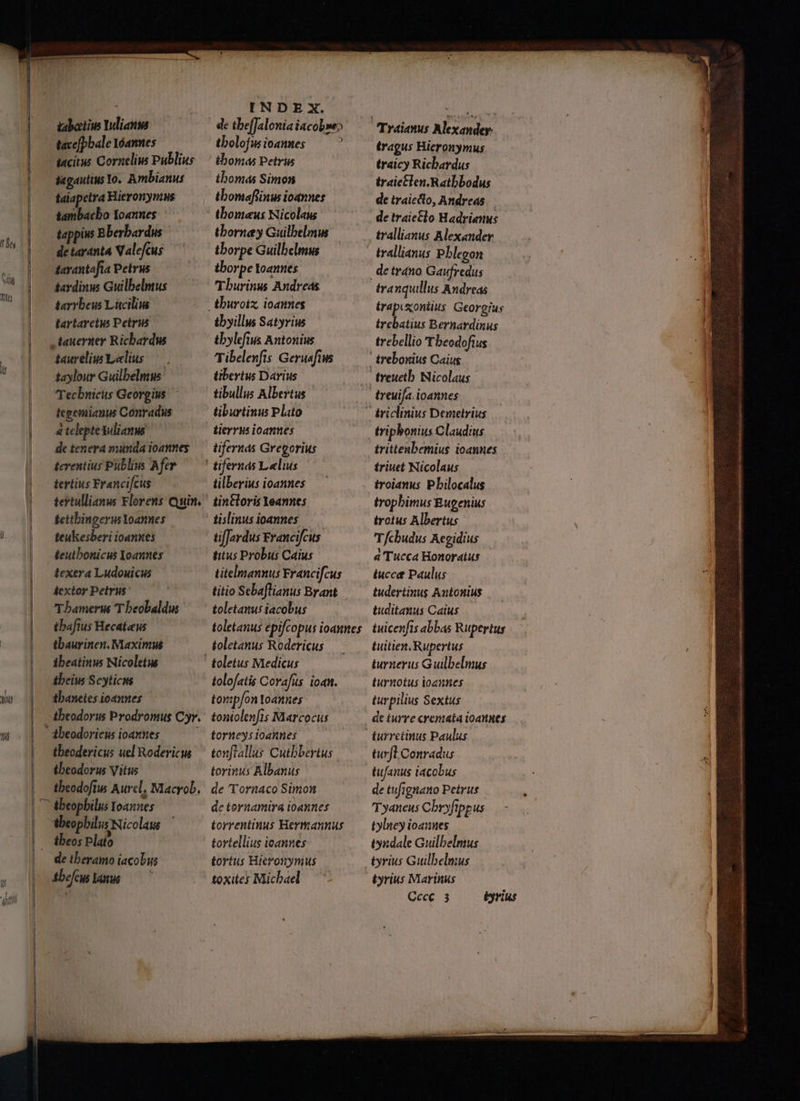 INDEX.
tabœtius Yulianus
tacesphale Yoannes
tacitus Cornelius Publius
tagautius Yo. Ambianus
taiapetra Hieronymus
tambacho Yoannes
tappius Eberhardus
de taranta Valescus
tarantasia Petrus
tardinus Guilhelmus
tarrheus Lucilius
tartaretus Petrus
tauerner Richardus
taurelius Lælius
taylour Guilhelmus
Technicus Georgius
tegemianus Conradus
à telepte Yulianus
de tenera munda ioannes
terentius Publius Afer
tertius Franciscus
tertullianus Florens Quin.
tetthingerus Yoannes
teukesberi ioannes
teuthonicus Yoannes
texera Ludouicus
textor Petrus
Thamerus Theobaldus
thasius Hecatæus
thaurinen. Maximus
theatinus Nicoletus
theius Scyticus
thanetes ioannes
theodorus Prodromus Cyr.
theodoricus ioannes
theodericus uel Rodericus
theodorus Vitus
theodosius Aurel, Macrob,
theophilus Yoannes
theophilus Nicolaus
theos Plato
de theramo iacobus
thescus Ianus
de thessalonia iacobus
tholosus ioannes
thomas Petrus
thomas Simon
thomassinus ioannes
thomæus Nicolaus
thorney Guilhelmus
thorpe Guilhelmus
thorpe Yoannes
Thurinus Andreas
thurotz, ioannes
thyillus Satyrius
thylesius Antonius
Tibelensis Geruasius
tibertus Darius
tibullus Albertus
tiburtinus Plato
tierrus ioannes
tifernas Gregorius
tifernas Lælius
tilberius ioannes
tinctoris Yoannes
tislinus ioannes
tissardus Franciscus
titus Probus Caius
titelmannus Franciscus
titio Sebastianus Brant
toletanus iacobus
toletanus episcopus ioannes
toletanus Rodericus
toletus Medicus
tolosatis Corasus ioan.
tompson Yoannes
tomiolensis Marcocus
torneys ioannes
tonstallus Cuthbertus
torinus Albanus
de Tornaco Simon
de tornamira ioannes
torrentinus Hermannus
tortellius ioannes
tortus Hieronymus
toxites Michael
Traianus Alexander
tragus Hieronymus
traicy Richardus
traiecten. Rathbodus
de traiecto, Andreas
de traiecto Hadrianus
trallianus Alexander
trallianus Phlegon
de trano Gaufredus
tranquillus Andreas
trapezontius Georgius
trebatius Bernardinus
trebellio Theodosius
trebonius Caius
treueth Nicolaus
treuisa. ioannes
triclinius Demetrius
triphonius Claudius
trittenhemius ioannes
triuet Nicolaus
troianus Philocalus
trophimus Eugenius
trotus Albertus
Tschudus Aegidius
à Tucca Honoratus
tuccæ Paulus
tudertinus Antonius
tuditanus Caius
tuicensis abbas Rupertus
tuitien. Rupertus
turnerus Guilhelmus
turnotus ioannes
turpilius Sextus
de turre cremata ioannes
turretinus Paulus
turst Conradus
tusanus iacobus
de tusignano Petrus
Tyaneus Chrysippus
tylney ioannes
tyndale Guilhelmus
tyrius Guilhelmus
tyrius Marinus
Cccc 3 tyrius